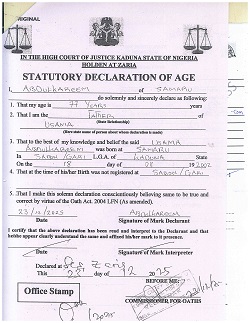 ORIGINAL
IN THE HIGH COURT OF JUSTICE KADUNA STATE OF NIGERIA
HOLDEN AT ZARIA
STATUTORY DECLARATION OF AGE
I, ABDULKAREEM of SAMARU
do solemnly and sincerely declare as following:
1. That my age is 77 YEARS years
2. That I am the FATHER of
USAMA (State Relationship)
(Here state name of person about whom declaration is made)
3. That to the best of my knowledge and belief the said USAMA
ABDULKAREEM was born at SAMARU
In SABON/GARI L.G.A. of KADUNA State
On the 18 day of 08 19 2002
4. That at the time of his/her Birth was not registered at SABON/GARI
5. That I make this solemn declaration conscientiously believing same to be true and
correct by virtue of the Oath Act. 2004 LFN (As amended).
23/12/2025 ABDULKAREEM
Date Signature of Mark Declarant
I certify that the above declaration has been read and interpret to the Declarant and that
he/she appear clearly understand the same and affixed his/her mark is present.
Date Signature of Mark Interpreter
Declared at
This day of 12 2025
BEFORE ME:
Office Stamp
COMMISSIONER FOR OATHS